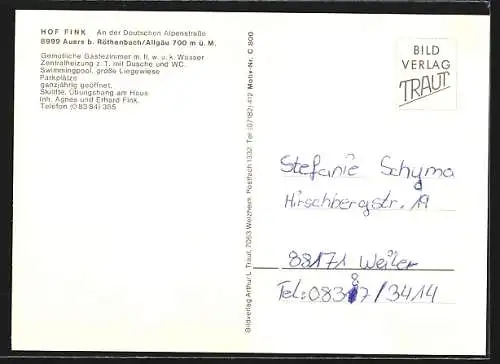 HOF FINK An der Deutschen Alpenstraße
8999 Auers b. Röthenbach/Allgäu 700 m ü. M.
Gemütliche Gästezimmer m. fl. w. u. k. Wasser
Zentralheizung z. T. mit Dusche und WC.
Swimmingpool, große Liegewiese
Parkplätze
ganzjährig geöffnet.
Skilifte, Übungshang am Haus
Inh. Agnes und Erhard Fink.
Telefon (0 83 84) 385
Bildverlag Arthur L. Traut, 7063 Welzheim, Postfach 1332, Tel. (07182) 412 Motiv-Nr. C 800
BILD
VERLAG
TRAUT
Stefanie Schyma
Hirschbergstr. 19
88171 Weiler
Tel: 08387/3414